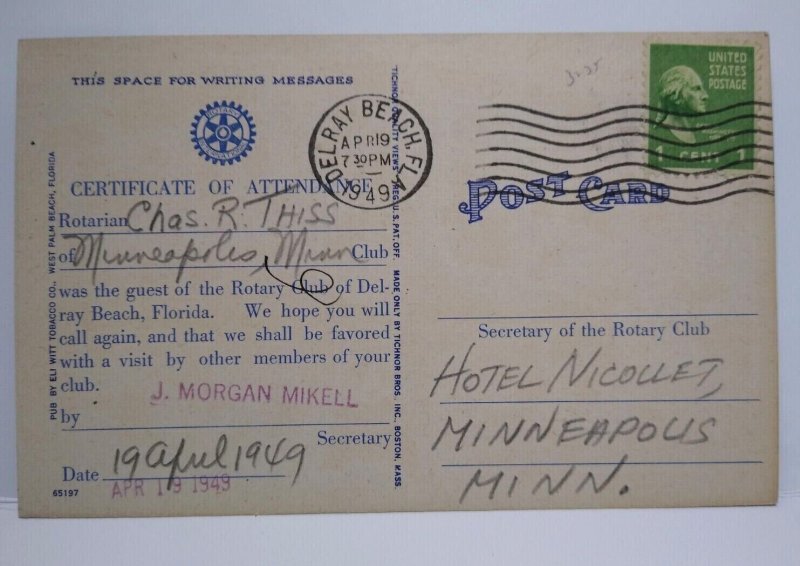 THIS SPACE FOR WRITING MESSAGES
ROTARY INTERNATIONAL
CERTIFICATE OF ATTENDANCE
Rotarian Chas. R. THISS
of Minneapolis, Minn Club
was the guest of the Rotary Club of Del-
ray Beach, Florida. We hope you will
call again, and that we shall be favored
with a visit by other members of your
club.
J. MORGAN MIKELL
by
Secretary
Date 19 april 1949
APR 19 1949
65197
PUB BY ELI WITT TOBACCO CO., WEST PALM BEACH, FLORIDA
TICHNOR QUALITY VIEWS REG. U. S. PAT. OFF. MADE ONLY BY TICHNOR BROS. INC., BOSTON, MASS.
DELRAY BEACH, FLA.
APR 19
7 30 PM
1949
3225
UNITED
STATES
POSTAGE
1 CENT 1
POST CARD
Secretary of the Rotary Club
HOTEL NICOLLET,
MINNEAPOLIS
MINN.